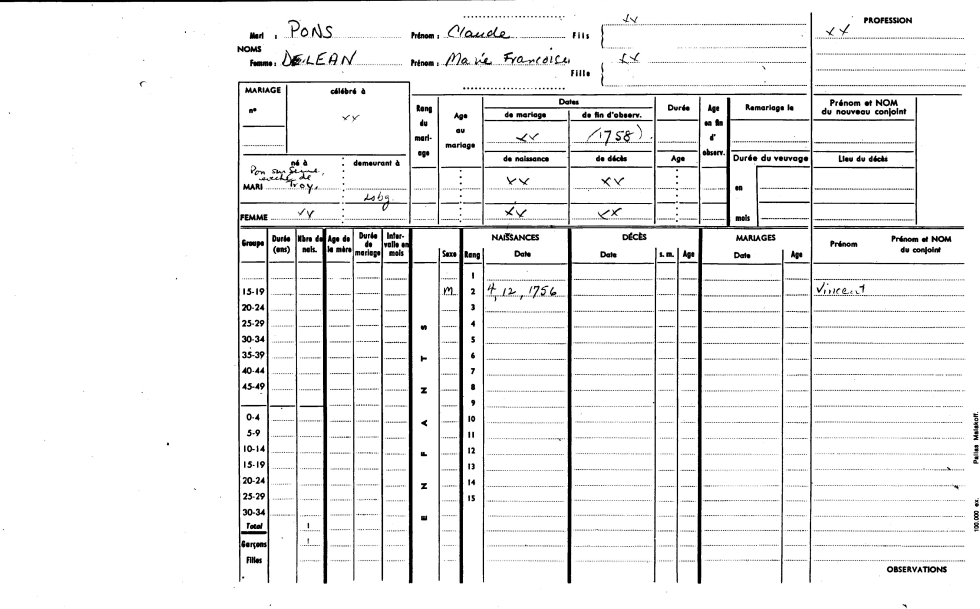 Mari : PONS Prénom : Claude Fils { xx PROFESSION
xx
NOMS
Femme : DELEAN Prénom : Marie Francoise Fille { xx
MARIAGE célébré à
n° xx
Rang du mariage Age au mariage Dates Durée Age en fin d'observ. Remariage le Prénom et NOM du nouveau conjoint
de mariage de fin d'observ.
xx (1758)
né à demeurant à de naissance de décès Age Durée du veuvage Lieu du décès
Pon sur Seine,
evêché de
MARI Troy, Lsbg. xx xx en
FEMME xx xx xx mois
Groupe Durée (ans) Nbre de nais. Age de la mère Durée de mariage Intervalle en mois Sexe Rang NAISSANCES Date DÉCÈS Date s. m. Age MARIAGES Date Age Prénom Prénom et NOM du conjoint
1
15-19 M 2 4, 12, 1756 Vincent
20-24 3
25-29 S 4
30-34 5
35-39 T 6
40-44 7
45-49 N 8
9
0-4 A 10
5-9 11
10-14 F 12
15-19 13
20-24 N 14
25-29 15
30-34 E
Total 1
Garçons 1
Filles
OBSERVATIONS
100.000 ex. Pallas Malakoff.